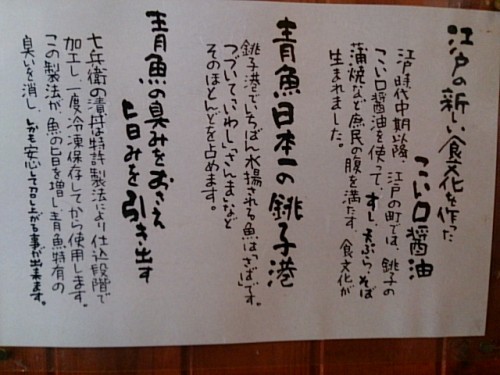 江戸の新しい食文化を作った
こい口醤油
江戸時代中期以降、江戸の町では、銚子の
こい口醤油を使って、すし、天ぷら、そば
蒲焼など庶民の腹を満たす、食文化が
生まれました。
青魚日本一の銚子港
銚子港でいちばん水揚される魚は「さば」です。
つづいて「いわし」、「さんま」などと
そのほとんどを占めます。
青魚の臭みをおさえ
旨みを引き出す
七兵衛の漬丼は特許製法により仕込段階で
加工し、一度冷凍保存してから使用します。
この製法が、魚の旨を増し、青魚特有の
臭いを消し、しかも安心して召し上がる事が出来ます。